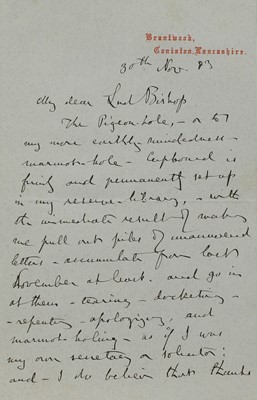 Brantwood,
Coniston, Lancashire.
30th Nov. 83
My dear Lord Bishop
The Pigeon-hole, - or to
my more earthly mindedness -
marmot-hole - Cupboard is
firmly and permanently set up
in my reserve-library, - with
the immediate result of making
me pull out piles of unanswered
letters - accumulate from last
November at least. and go in
at them - tearing - docketing -
- repenting - apologizing, and
marmot-holing - as if I was
my own secretary or solicitor:
and - I do believe that thanks